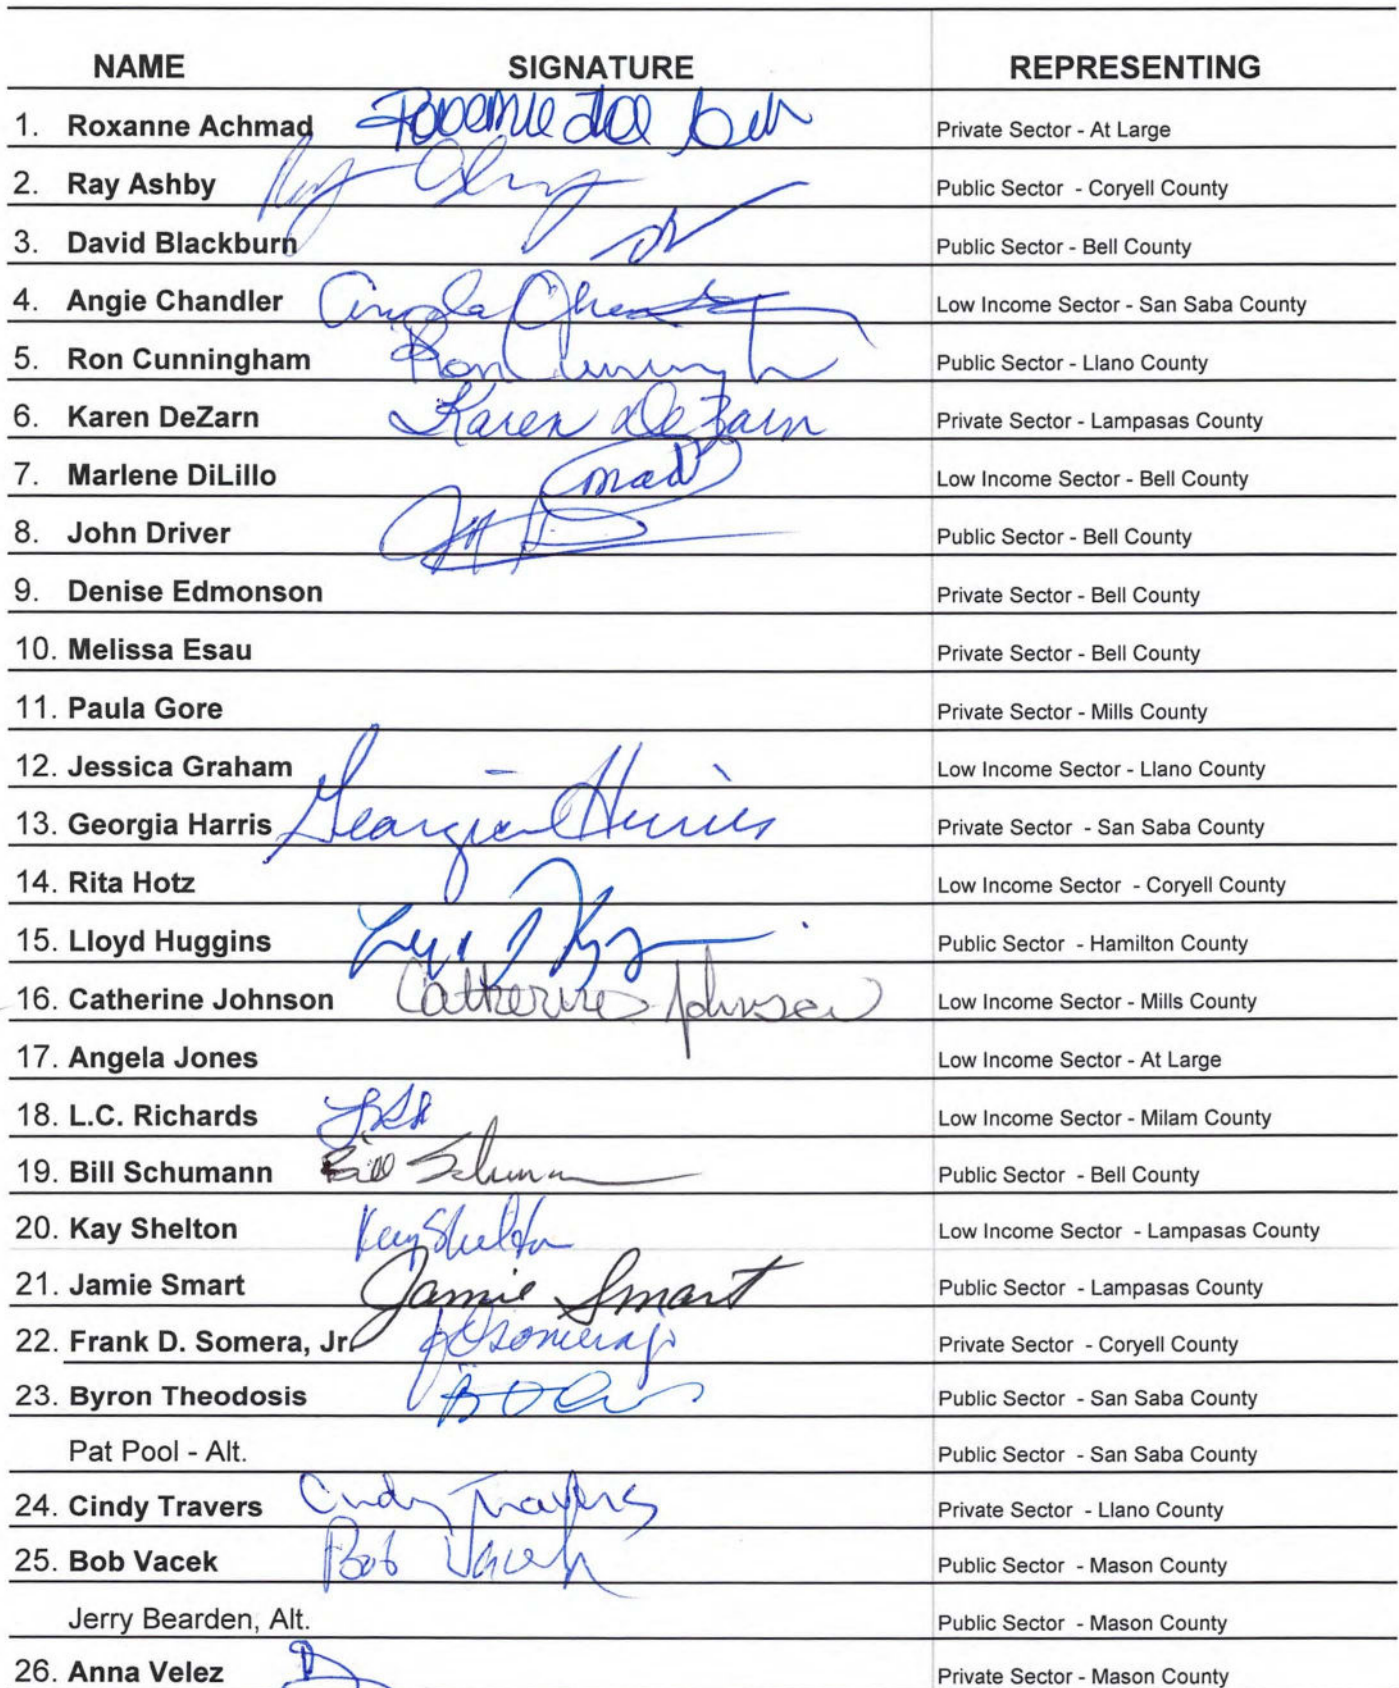 NAME SIGNATURE REPRESENTING
1. Roxanne Achmad Private Sector - At Large
2. Ray Ashby Ray Ashby Public Sector - Coryell County
3. David Blackburn Public Sector - Bell County
4. Angie Chandler Angela Low Income Sector - San Saba County
5. Ron Cunningham Ron Public Sector - Llano County
6. Karen DeZarn Karen DeZarn Private Sector - Lampasas County
7. Marlene DiLillo Low Income Sector - Bell County
8. John Driver Public Sector - Bell County
9. Denise Edmonson Private Sector - Bell County
10. Melissa Esau Private Sector - Bell County
11. Paula Gore Private Sector - Mills County
12. Jessica Graham Low Income Sector - Llano County
13. Georgia Harris Georgia Harris Private Sector - San Saba County
14. Rita Hotz Low Income Sector - Coryell County
15. Lloyd Huggins Public Sector - Hamilton County
16. Catherine Johnson Catherine Johnson Low Income Sector - Mills County
17. Angela Jones Low Income Sector - At Large
18. L.C. Richards Low Income Sector - Milam County
19. Bill Schumann Bill Schumann Public Sector - Bell County
20. Kay Shelton Kay Shelton Low Income Sector - Lampasas County
21. Jamie Smart Jamie Smart Public Sector - Lampasas County
22. Frank D. Somera, Jr. Private Sector - Coryell County
23. Byron Theodosis Public Sector - San Saba County
Pat Pool - Alt. Public Sector - San Saba County
24. Cindy Travers Cindy Travers Private Sector - Llano County
25. Bob Vacek Bob Vacek Public Sector - Mason County
Jerry Bearden, Alt. Public Sector - Mason County
26. Anna Velez Private Sector - Mason County